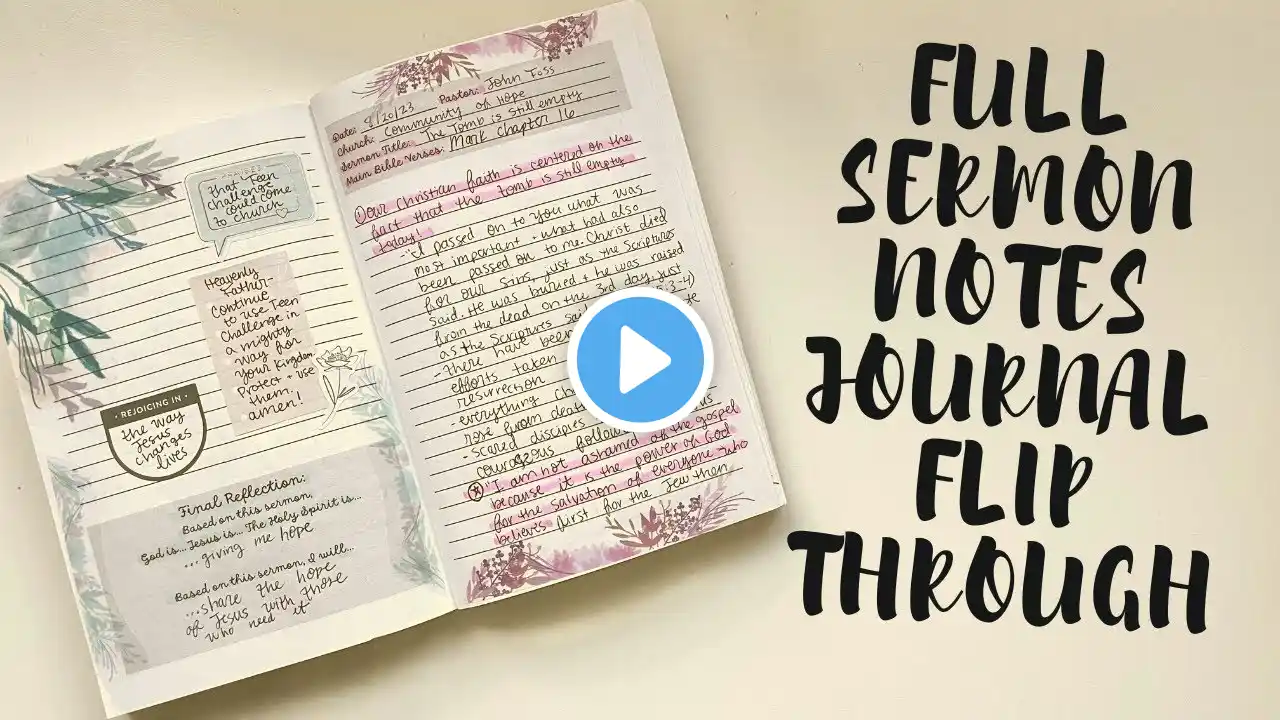 that Teen
challenge
could come
to church
Heavenly
Father -
continue
to use Teen
Challenge in
a mighty
way for
your kingdom
Protect + use
them.
amen!
• REJOICING IN •
the way
Jesus
changes
lives
Final Reflection:
Based on this sermon,
God is... Jesus is... The Holy Spirit is...
...giving me hope
Based on this sermon, I will...
...share the hope
of Jesus with those
who need it
Date: 8/20/23 Pastor: John Foss
Church: Community of Hope
Sermon Title: The Tomb is Still Empty
Main Bible Verses: Mark Chapter 16
Our Christian faith is centered on the
fact that the tomb is still empty
today!
"I passed on to you what was
most important + what had also
been passed on to me. Christ died
for our sins, just as the Scriptures
said. He was buried + he was raised
from the dead on the 3rd day, just
as the Scriptures said
-There have been
efforts taken
resurrection
everything
rose from death
-scared disciples
courageous
"I am not ashamed of the gospel
because it is the power of God
for the salvation of everyone who
believes first for the Jew then
FULL
SERMON
NOTES
JOURNAL
FLIP
THROUGH